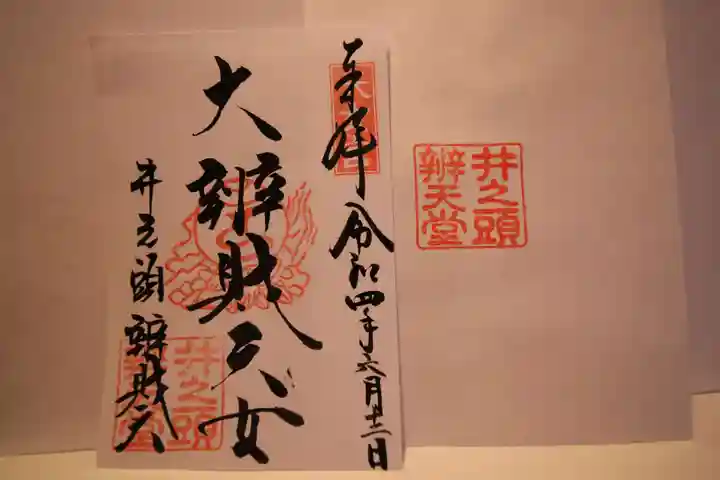 奉拝
令和四年六月廿二日
大辨財天女
井之頭辨財天
井之頭
辨天堂
井之頭
辨天堂